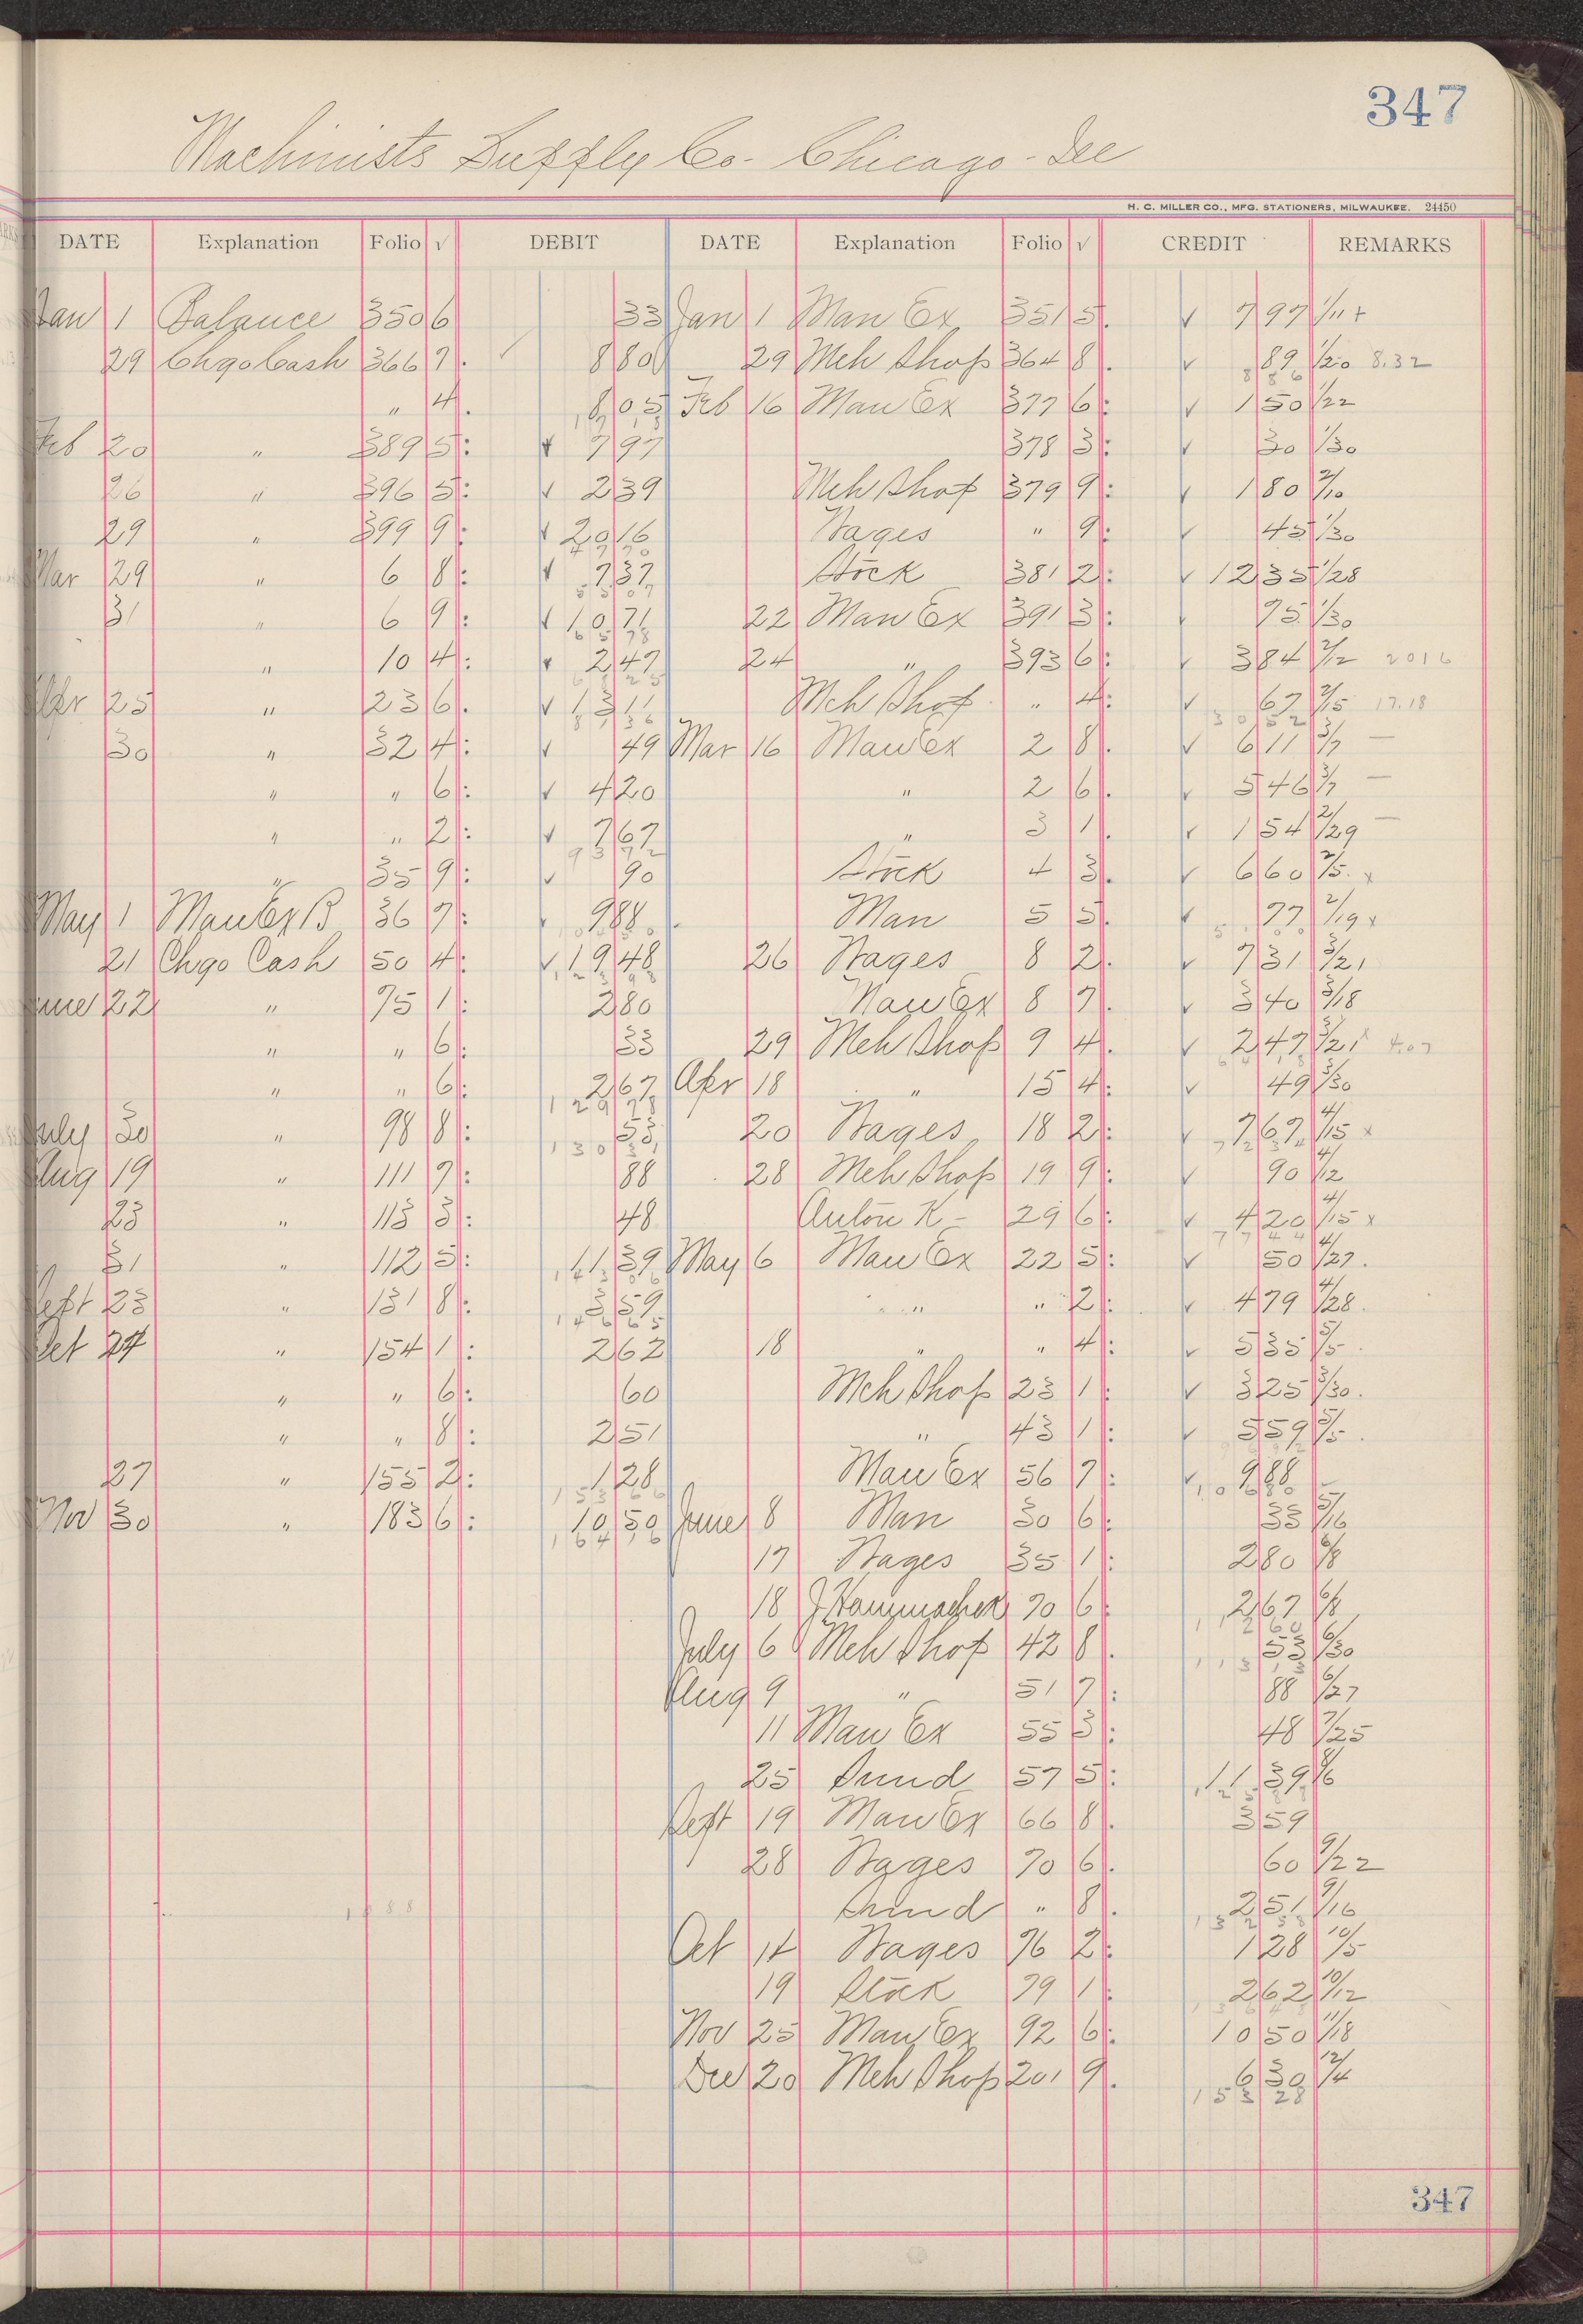 347
Machinists Supply Co. Chicago - Ill
H. C. MILLER CO., MFG. STATIONERS, MILWAUKEE. 24450
DATE Explanation Folio √ DEBIT DATE Explanation Folio √ CREDIT REMARKS
Jan 1 Balance 350 6 33 Jan 1 Man Ex 351 5 √ 797 1/11 +
29 Chgo Cash 366 7 √ 880 29 Mch Shop 364 8 √ 89 1/20 8.32
" 4 805 Feb 16 Man Ex 377 6 √ 150 1/22
Feb 20 " 389 5 √ 797 378 3 √ 30 1/30
26 " 396 5 √ 239 Mch Shop 379 9 √ 180 2/10
29 " 399 9 √ 2016 Wages " 9 √ 45 1/30
Mar 29 " 6 8 √ 737 Stock 381 2 √ 1235 1/28
31 " 6 9 √ 1071 22 Man Ex 391 3 √ 75 1/30
" 10 4 √ 247 24 " 393 6 √ 384 2/12 2016
Apr 25 " 23 6 √ 1311 Mch Shop " 4 √ 67 2/15 17.18
30 " 32 4 √ 49 Mar 16 Man Ex 2 8 √ 611 3/7 —
" " 6 √ 420 " 2 6 √ 546 3/7 —
" " 2 √ 767 " 3 1 √ 154 2/29 —
" 35 9 √ 90 Stock 4 3 √ 660 3/5 x
May 1 Man Ex B 36 7 √ 988 Man 5 5 √ 77 2/19 x
21 Chgo Cash 50 4 √ 1948 26 Wages 8 2 √ 731 3/21
June 22 " 75 1 280 Man Ex 8 7 √ 340 3/18
" " 6 33 29 Mch Shop 9 4 √ 247 3/21
" " 6 267 Apr 18 " 15 4 √ 49 3/30
July 30 " 98 8 53 20 Wages 18 2 √ 767 4/15 x
Aug 19 " 111 7 88 28 Mch Shop 19 9 √ 90 4/12
23 " 113 3 48 Anton K - 29 6 √ 420 4/15 x
31 " 112 5 1139 May 6 Man Ex 22 5 √ 50 4/27
Sept 23 " 131 8 359 " " 2 √ 479 4/28
Oct 24 " 154 1 262 18 " " 4 √ 535 5/5
" " 6 60 Mch Shop 23 1 √ 325 3/30
" " 8 251 " 43 1 √ 559 5/5
27 " 155 2 128 Man Ex 56 7 √ 988
Nov 30 " 183 6 1050 June 8 Man 30 6 33 5/16
17 Wages 35 1 280 6/8
18 70 6 267 6/8
July 6 Mch Shop 42 8 53 6/30
Aug 9 " 51 7 88 6/27
11 Man Ex 55 3 48 7/25
25 Sund 57 5 1139 8/6
Sept 19 Man Ex 66 8 359
28 Wages 70 6 60 9/22
Sund " 8 251 9/16
Oct 14 Wages 76 2 128 10/5
19 Stock 79 1 262 10/12
Nov 25 Man Ex 92 6 1050 11/18
Dec 20 Mch Shop 201 9 630 12/4
347